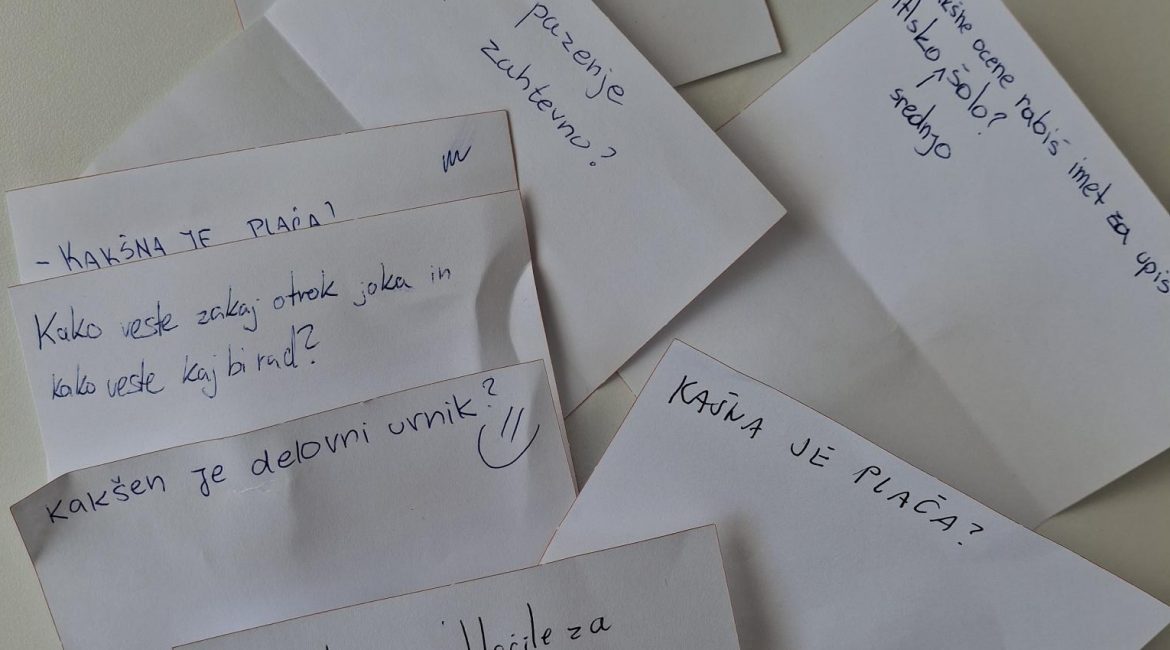 pazenje
zahtevno?
ocene rabiš imet za upis
šolo?
srednjo
- KAKŠNA JE PLAČA?
Kako veste zakaj otrok joka in
kako veste kaj bi rad?
Kakšen je delovni urnik?
KAŠNA JE PLAČA?
za